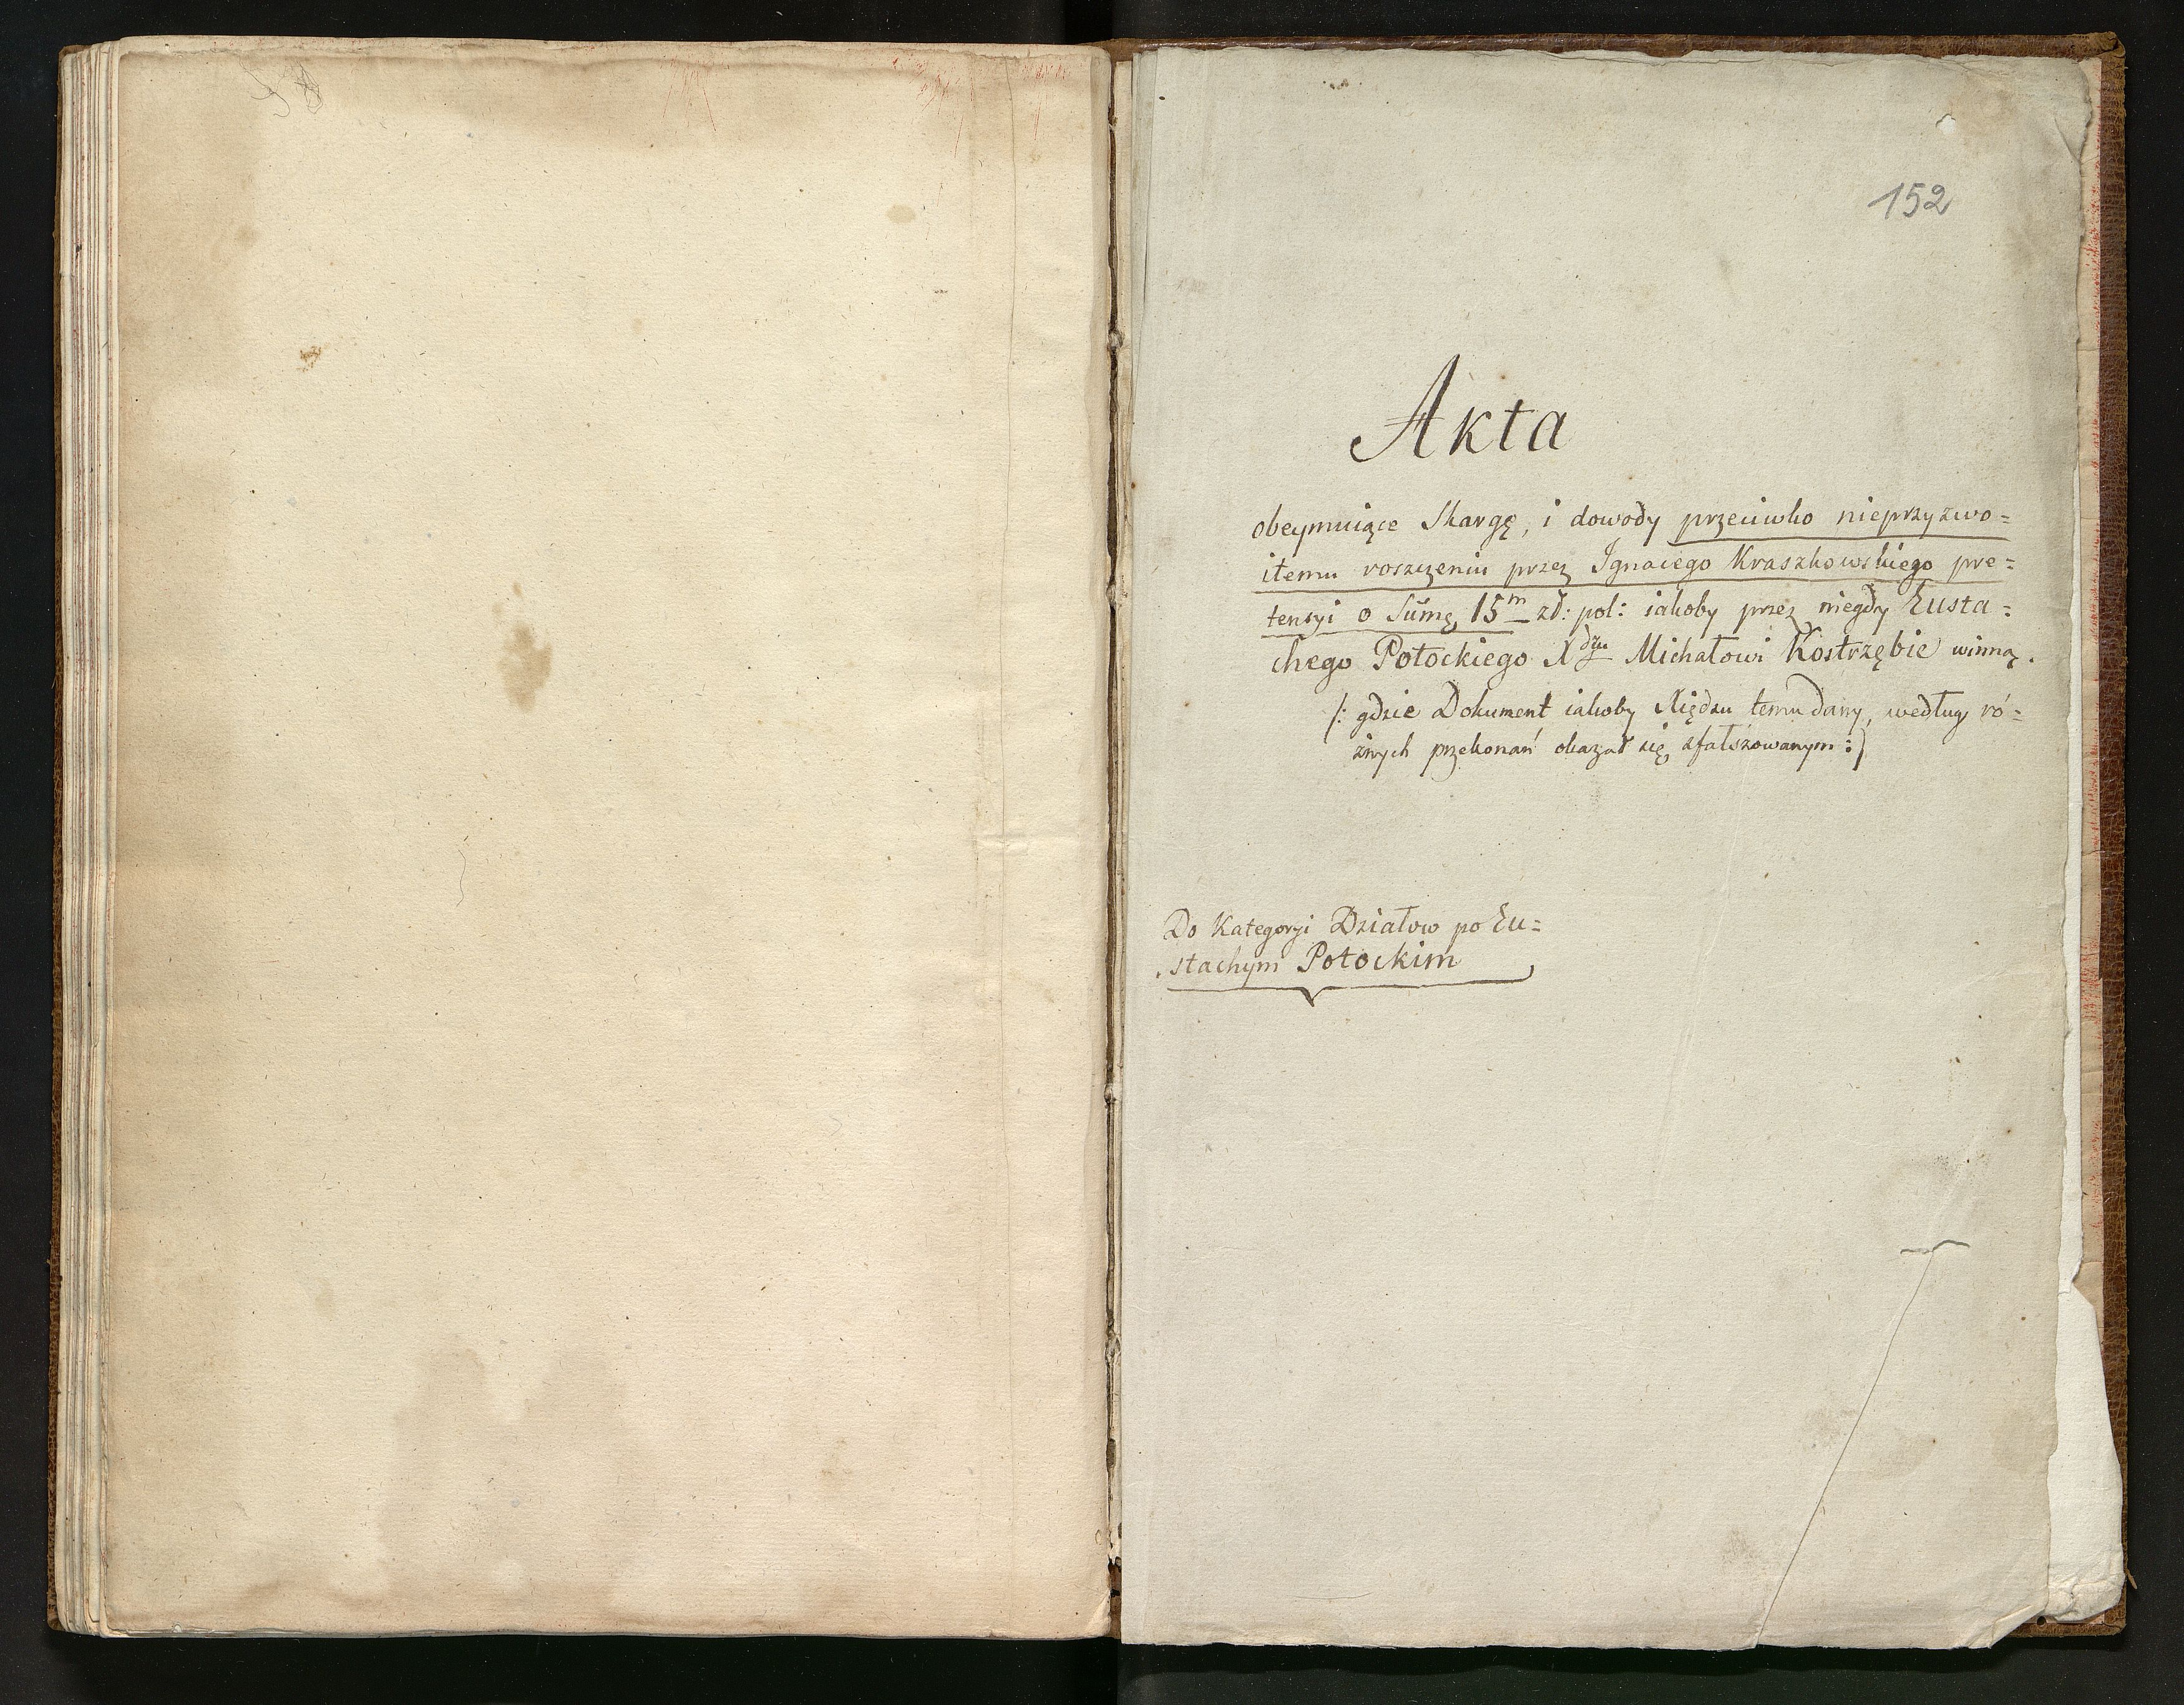 152
Akta
obeymuiące Skargę, i dowody przeciwko nieprzyzwo=
itemu roszczeniu przez Ignacego Kraszkowskiego pre=
tensyi o Sum̄ę 15m zł: pol: iakoby przez niegdy Eusta=
chego Potockiego Xdzu Michałowi Kostrzębie winną.
/: gdzie Dokument iakoby Xiędzu temu dany, według ró=
żnych przekonań okazał się sfałszowanym :/
Do Kategoryi Działow po Eu=
stachym Potockim